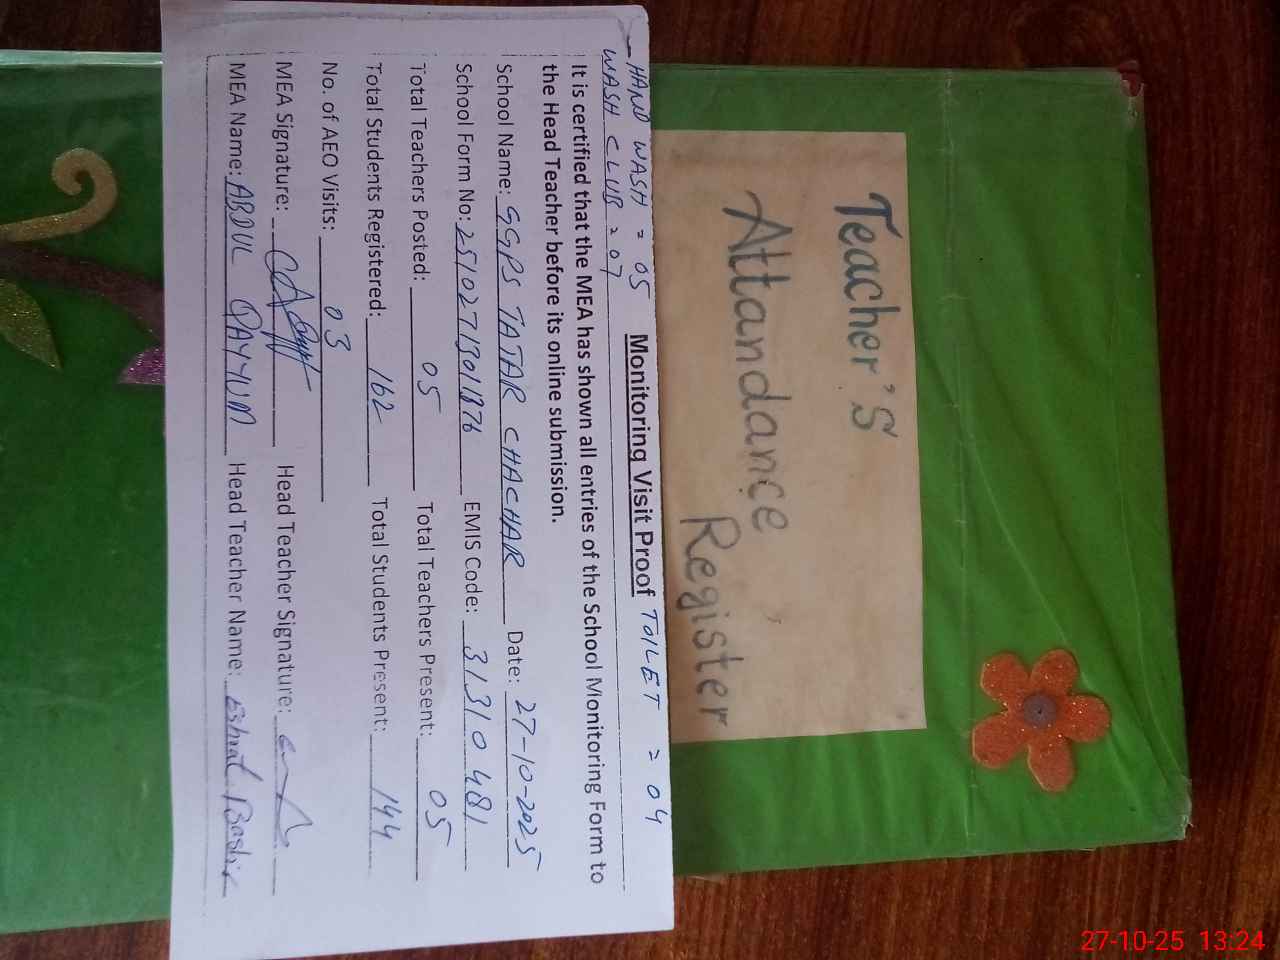 HAND WASH = 05
WASH CLUB = 07
TOILET = 04
Monitoring Visit Proof
It is certified that the MEA has shown all entries of the School Monitoring Form to
the Head Teacher before its online submission.
School Name: GGPS TATAR CHACHAR Date: 27-10-2025
School Form No: 2510271301876 EMIS Code: 31310481
Total Teachers Posted: 05 Total Teachers Present: 05
Total Students Registered: 162 Total Students Present: 144
No. of AEO Visits: 03
MEA Signature: Head Teacher Signature:
MEA Name: ABDUL QAYYUM Head Teacher Name: Eshrat Bashir
Teacher'S
Attandance
Register
27-10-25 13:24